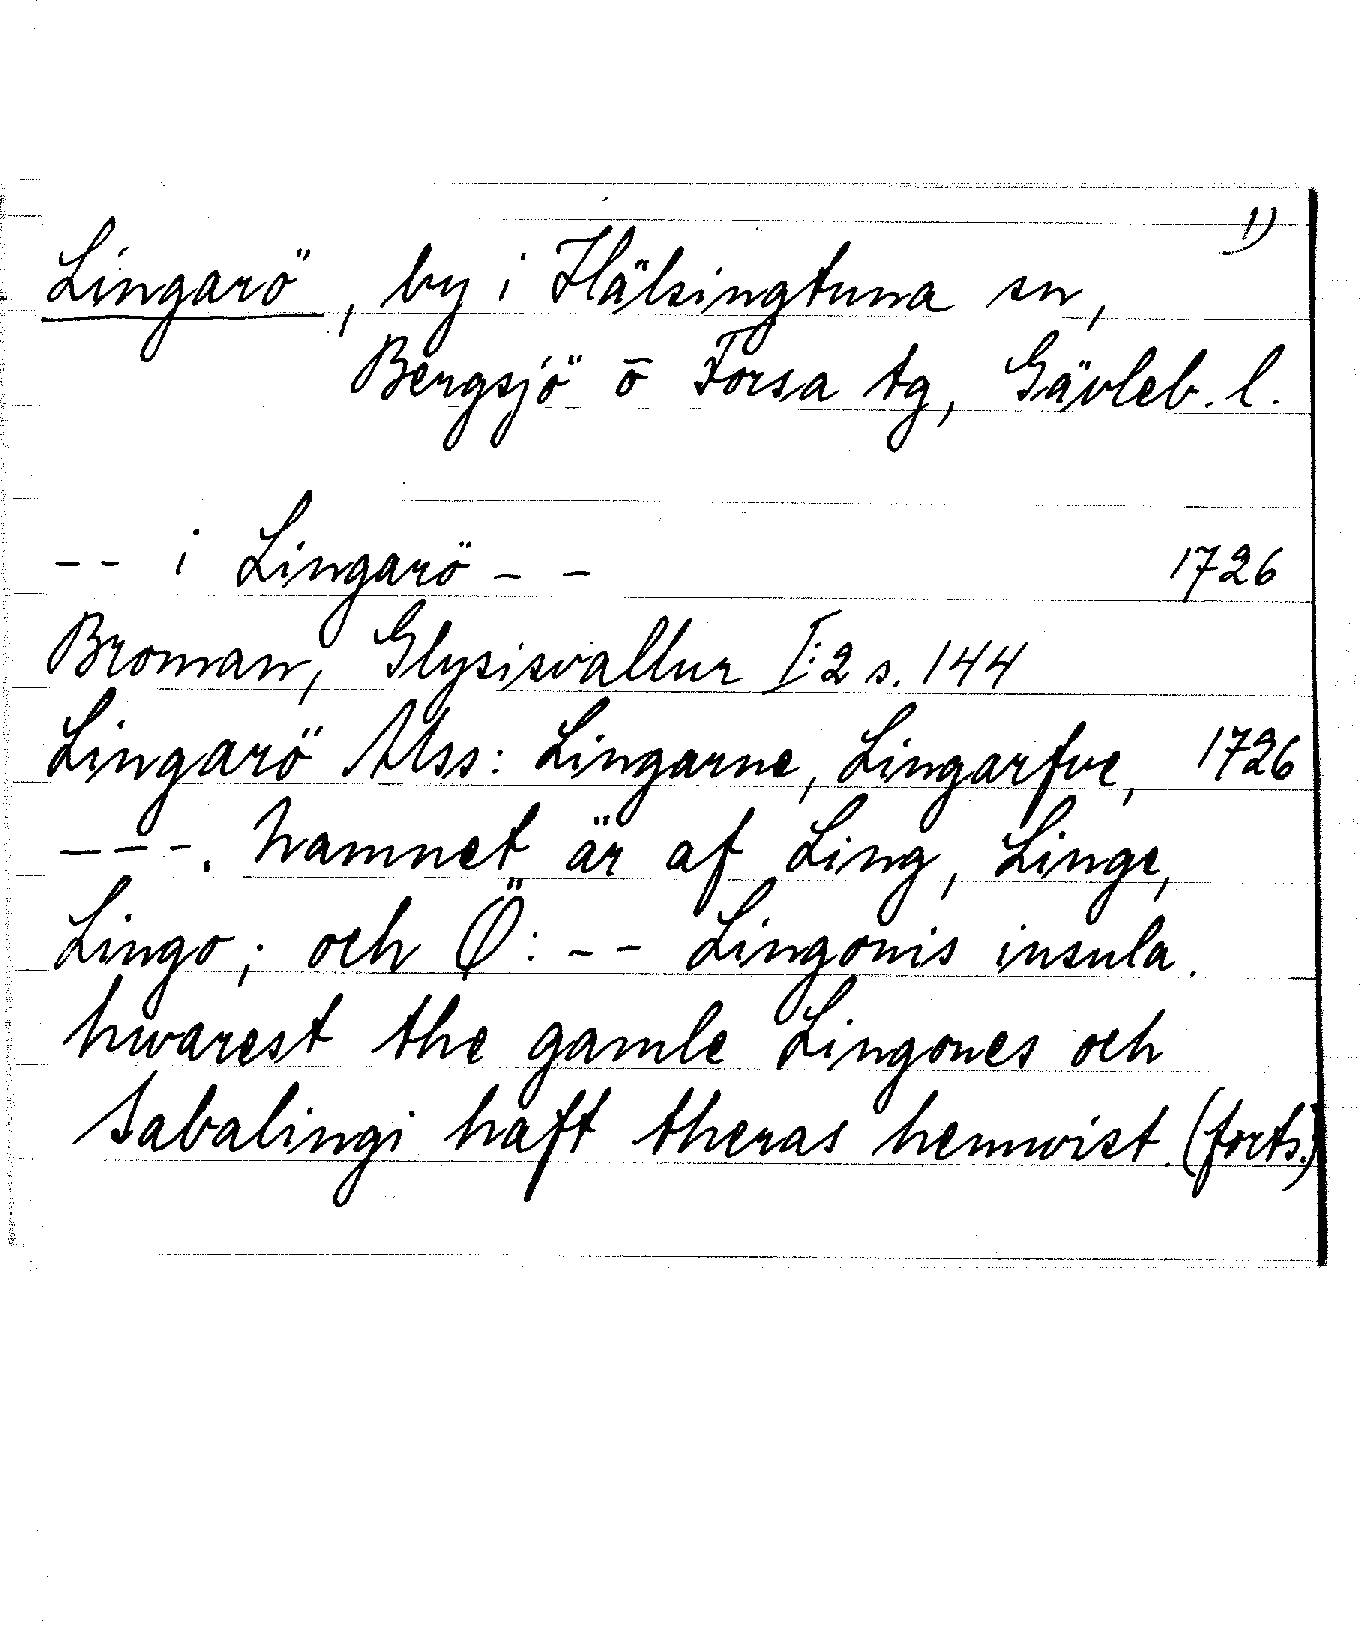 1)
Lingarö, by i Hälsingtuna sn,
Bergsjö o Forsa tg, Gävleb. l.
-- i Lingarö -- 1726
Broman, Glysisvallur I:2 s. 144
Lingarö Mss: Lingarne, Lingarfve, 1726
---. Namnet är af Ling, Linge,
Lingo; och Ö: -- Lingonis insula.
hwarest the gamle Lingones och
Sabalingi haft theras hemwist. (forts.)